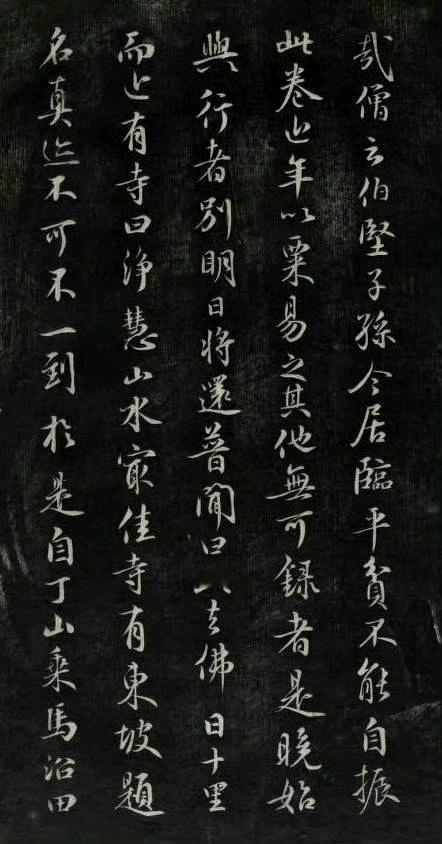 哉僧云伯堅子孫今居臨平貧不能自振
此卷近年以粟易之其他無可録者是晚始
與行者別明日將還普聞曰去佛日十里
而近有寺曰浄慧山水最佳寺有東坡題
名真迹不可不一到於是自丁山乘馬沿田